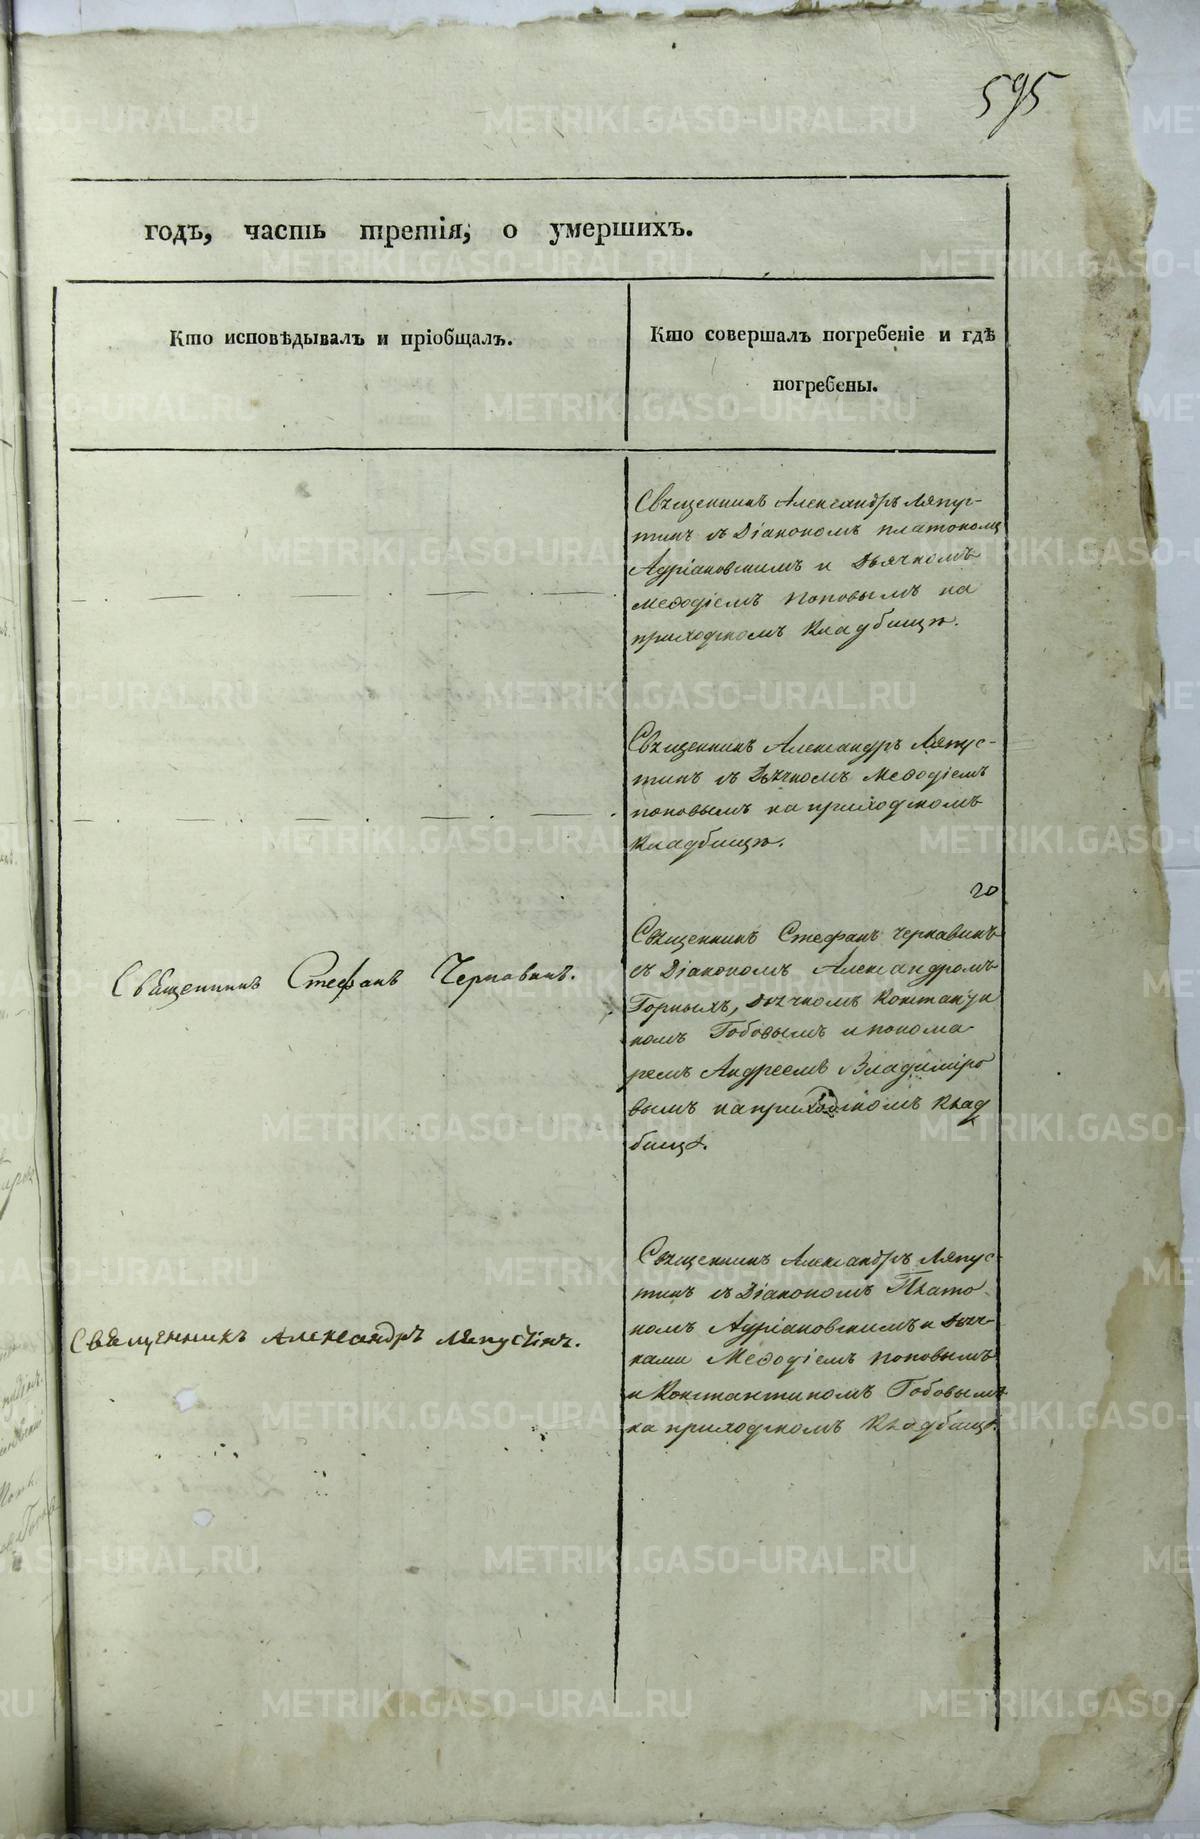 595
годъ, часть третія, о умершихъ.
Кто исповѣдывалъ и пріобщалъ.
Кто совершалъ погребеніе и гдѣ
погребены.
Священникъ Александръ Ляпус-
тинъ съ Діакономъ Платономъ
Адріановскимъ и Дьячкомъ
Меѳодіемъ Поповымъ на
приходскомъ кладбищѣ.
Священникъ Александръ Ляпус-
тинъ съ Дьячкомъ Меѳодіемъ
Поповымъ на приходскомъ
кладбищѣ.
Священникъ Стефанъ Чернавинъ.
Священникъ Стефанъ Чернавинъ
съ Діакономъ Александромъ
Горныхъ, Дьячкомъ Константи
номъ Гобовымъ и понома-
ремъ Андреемъ Владиміро
вымъ на приходскомъ клад
бищѣ.
Священникъ Александръ Ляпустінъ.
Священникъ Александръ Ляпус-
тинъ съ Діакономъ Плато
номъ Адріановскимъ и Дьяч-
ками Меѳодіемъ Поповымъ
и Константиномъ Гобовымъ
на приходскомъ кладбищѣ.
METRIKI.GASO-URAL.RU